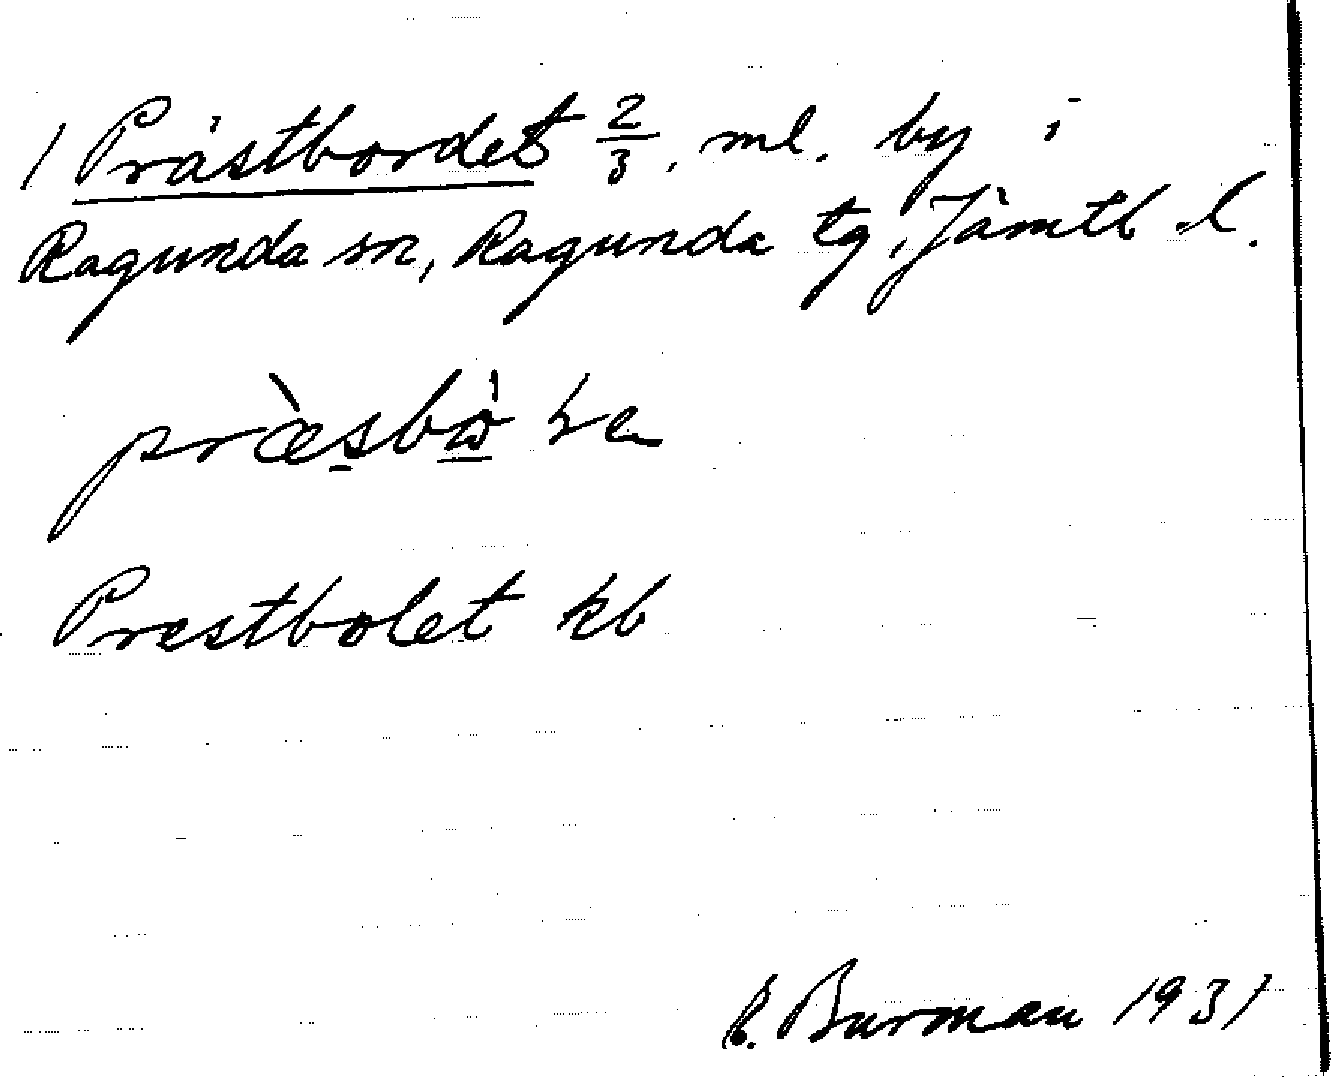 1 Prästbordet 2/3. ml. by i
Ragunda sn, Ragunda tg, Jämtl l.
Prestbolet kb
B. Burman 1931